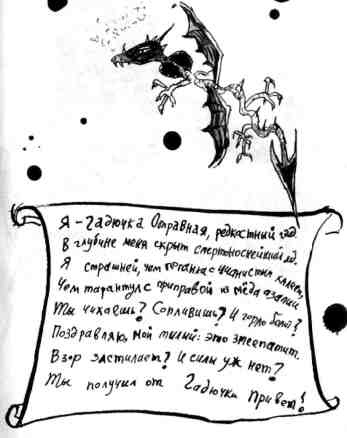 Я – Гадючка Отравная, редкостный гад.
В глубине меня скрыт смертоноснейший яд.
Я страшней, чем поганка с цианистым калием,
Чем тарантул с приправой из мёда азалии.
Ты чихаешь? Сопливишь? И горло болит?
Поздравляю, мой милый: это змеепатит.
Взор застилает? И силы уж нет?
Ты получил от Гадючки привет!